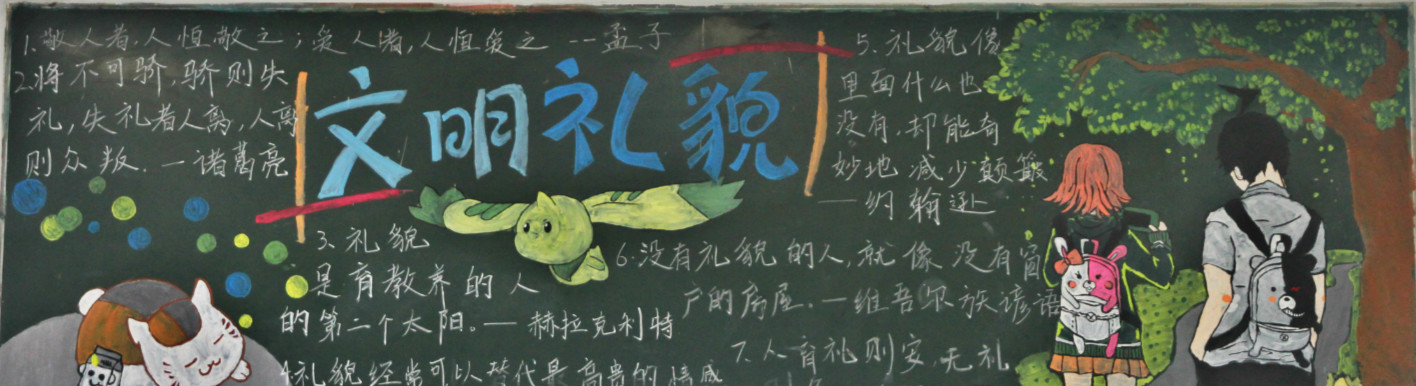 文明礼貌
1.敬人者,人恒敬之;爱人者,人恒爱之 --孟子
2.将不可骄,骄则失
礼,失礼者人离,人离
则众叛.一诸葛亮
3.礼貌
是有教养的人
的第二个太阳。—赫拉克利特
4.礼貌经常可以替代最高贵的情感
5.礼貌像
里面什么也
没有,却能奇
妙地减少颠簸
—约翰逊
6.没有礼貌的人,就像没有窗
户的房屋.—维吾尔族谚语
7.人有礼则安,无礼